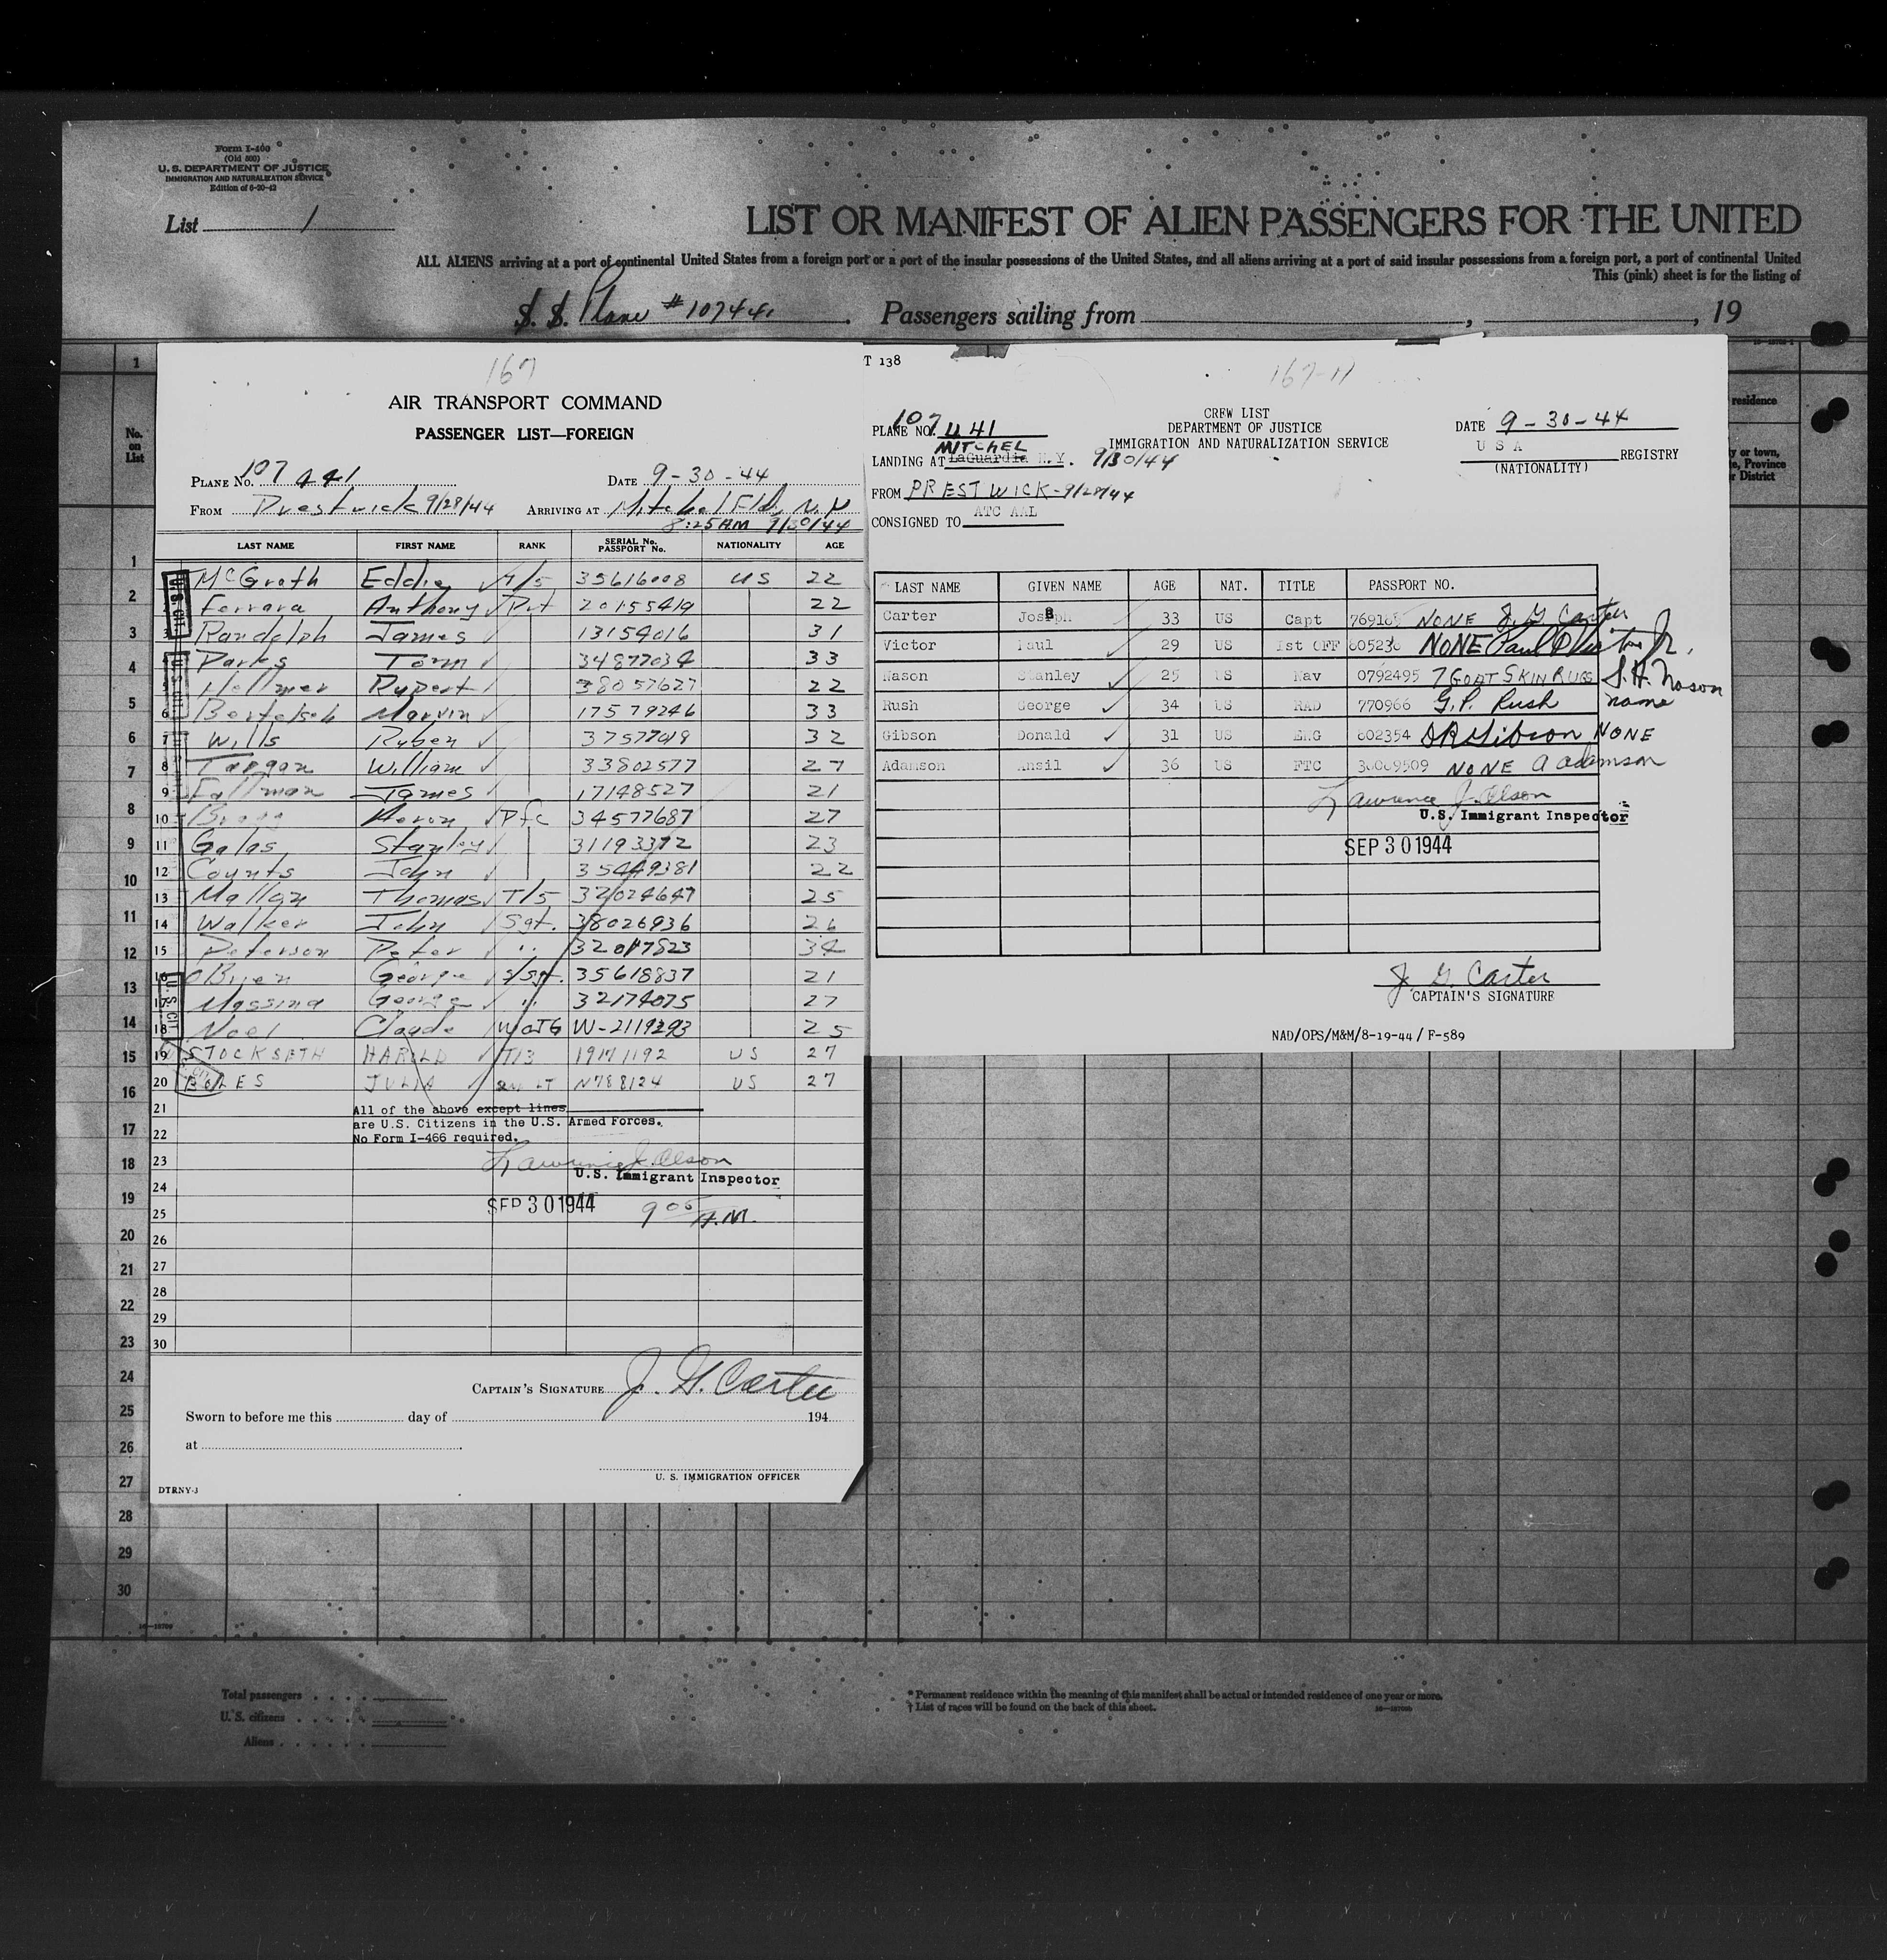 Form I-400
(Old 500)
U. S. DEPARTMENT OF JUSTICE
IMMIGRATION AND NATURALIZATION SERVICE
Edition of 6-20-42
List 1
LIST OR MANIFEST OF ALIEN PASSENGERS FOR THE UNITED
ALL ALIENS arriving at a port of continental United States from a foreign port or a port of the insular possessions of the United States, and all aliens arriving at a port of said insular possessions from a foreign port, a port of continental United
This (pink) sheet is for the listing of
S. S. Plane #107441. Passengers sailing from , , 19
167
AIR TRANSPORT COMMAND
PASSENGER LIST—FOREIGN
PLANE No. 107441 DATE 9-30-44
FROM Prestwick 9/28/44 ARRIVING AT Mitchel Fld, N.Y
8:25AM 9/30/44
LAST NAME FIRST NAME RANK SERIAL No. PASSPORT No. NATIONALITY AGE
1 McGrath Eddie T/5 35616008 US 22
2 Ferrara Anthony Pvt 20155419 22
3 Randolph James 13154016 31
4 Parks Tom 34877034 33
5 Rupert 38057627 22
6 Bertelsen Marvin 17579246 33
7 Wills Ruben 37577019 32
8 William 33802577 27
9 James 17148527 21
10 Bragg Pfc 34577687 27
11 Galas Stanley 31193372 23
12 Counts John 35449381 22
13 Mallan Thomas T/5 32024647 25
14 Walker John Sgt. 38026936 26
15 Peterson Peter " 32017823 34
16 OBrien George S/Sgt. 35618837 21
17 Massina George " 32174075 27
18 Noel Claude WOJG W-2119293 25
19 STOCKSETH HAROLD T/3 19171192 US 27
20 BOLES JULIA 2nd LT N788124 US 27
21 All of the above except lines
are U.S. Citizens in the U.S. Armed Forces.
22 No Form I-466 required.
23 Lawrence J. Olson
U.S. Immigrant Inspector
24
SEP 30 1944 9 00 A.M.
25
26
27
28
29
30
CAPTAIN'S SIGNATURE J. G. Carter
Sworn to before me this day of 194
at
U. S. IMMIGRATION OFFICER
DTRNY-3
T 138
167-11
CREW LIST
DEPARTMENT OF JUSTICE
IMMIGRATION AND NATURALIZATION SERVICE
PLANE NO. 107441 DATE 9-30-44
MITCHEL
LANDING AT LaGuardia N.Y. 9/30/44
USA REGISTRY
(NATIONALITY)
FROM PRESTWICK-9/28/44
CONSIGNED TO ATC AAL
LAST NAME GIVEN NAME AGE NAT. TITLE PASSPORT NO.
Carter Joseph 33 US Capt NONE J. G. Carter
Victor Paul 29 US 1st OFF NONE
Nason Stanley 25 US Nav 0792495 7 GOAT SKIN RUGS S. H. Nason
Rush George 34 US RAD 770966 G. P. Rush none
Gibson Donald 31 US ENG 602354 D R Gibson NONE
Adamson Ansil 36 US FTC NONE A Adamson
Lawrence J. Olson
U.S. Immigrant Inspector
SEP 30 1944
J. G. Carter
CAPTAIN'S SIGNATURE
NAD/OPS/M&M/8-19-44 / F-589
No. on List
1
2
3
4
5
6
7
8
9
10
11
12
13
14
15
16
17
18
19
20
21
22
23
24
25
26
27
28
29
30
residence
y or town,
e, Province
r District
Total passengers
U. S. citizens
Aliens
* Permanent residence within the meaning of this manifest shall be actual or intended residence of one year or more.
† List of races will be found on the back of this sheet.